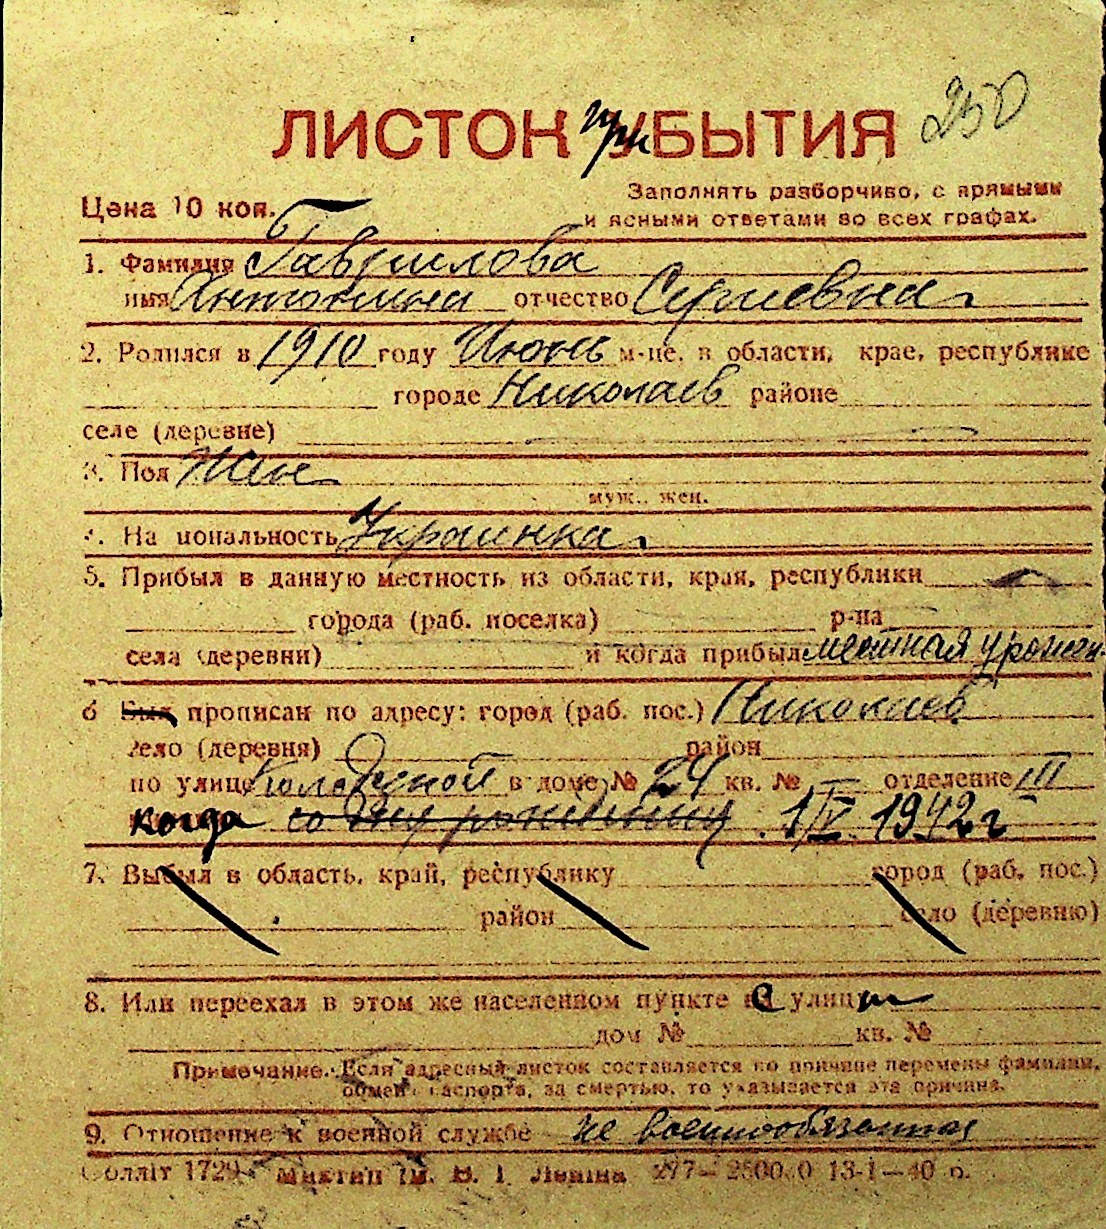 250
ЛИСТОК приБЫТИЯ
Цена 10 коп.
Заполнять разборчиво, с прямыми
и ясными ответами во всех графах.
1. Фамилия Гаврилова
имя Антонина отчество Сергиевна
2. Родился в 1910 году Июнь м-це, в области, крае, республике
городе Николаев районе
селе (деревне)
3. Пол Жен
муж., жен.
4. Национальность Украинка.
5. Прибыл в данную местность из области, края, республики
города (раб. поселка) р-на
села (деревни) и когда прибыл местная урожен.
6 Был прописан по адресу: город (раб. пос.) Николаев
село (деревня) район
по улице в доме № 24 кв. № отделение III
когда со дня рождения 1/IV 1942 г
7. Выбыл в область, край, республику город (раб. пос.)
район село (деревню)
8. Или переехал в этом же населенном пункте с улицы
дом № кв. №
Примечание. Если адресный листок составляется по причине перемены фамилии,
обмена паспорта, за смертью, то указывается эта причина.
9. Отношение к военной службе не военнообязанная
Облліт 1729 Миктип ім. В. І. Леніна 277— 13-I—40 р.